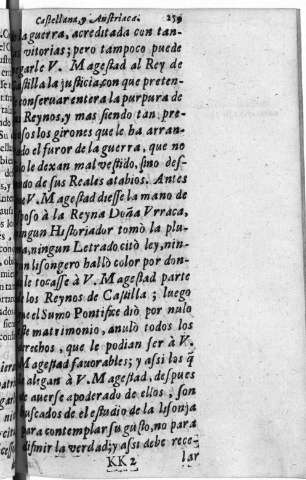 Castellana, y Austriaca. 259
la guerra, acreditada con tan-
vitorias; pero tampoco puede
garle V. Magestad al Rey de
stilla la justicia, con que preten-
conseruar entera la purpura de
Reynos, y mas siendo tan pre-
sos los girones que le ha arran-
do el furor de la guerra, que no
lo le dexan mal vestido, sino des-
do de sus Reales atabios. Antes
e V. Magestad diesse la mano de
poso à la Reyna Doña Vrraca,
ngun Historiador tomò la plu-
a, ningun Letrado citò ley, nin-
n lisongero hallò color por don-
le tocasse à V. Magestad parte
los Reynos de Castilla; luego
ue el Sumo Pontifice diò por nulo
ste matrimonio, anulò todos los
rechos, que le podian ser à V.
Magestad fauorables; y assi los q̃
alegan à V. Magestad, despues
de auerse apoderado de ellos, son
uscados de el estudio de la lisonja
para contemplar su gusto, no para
difinir la verdad; y assi debe rece-
KK 2 lar